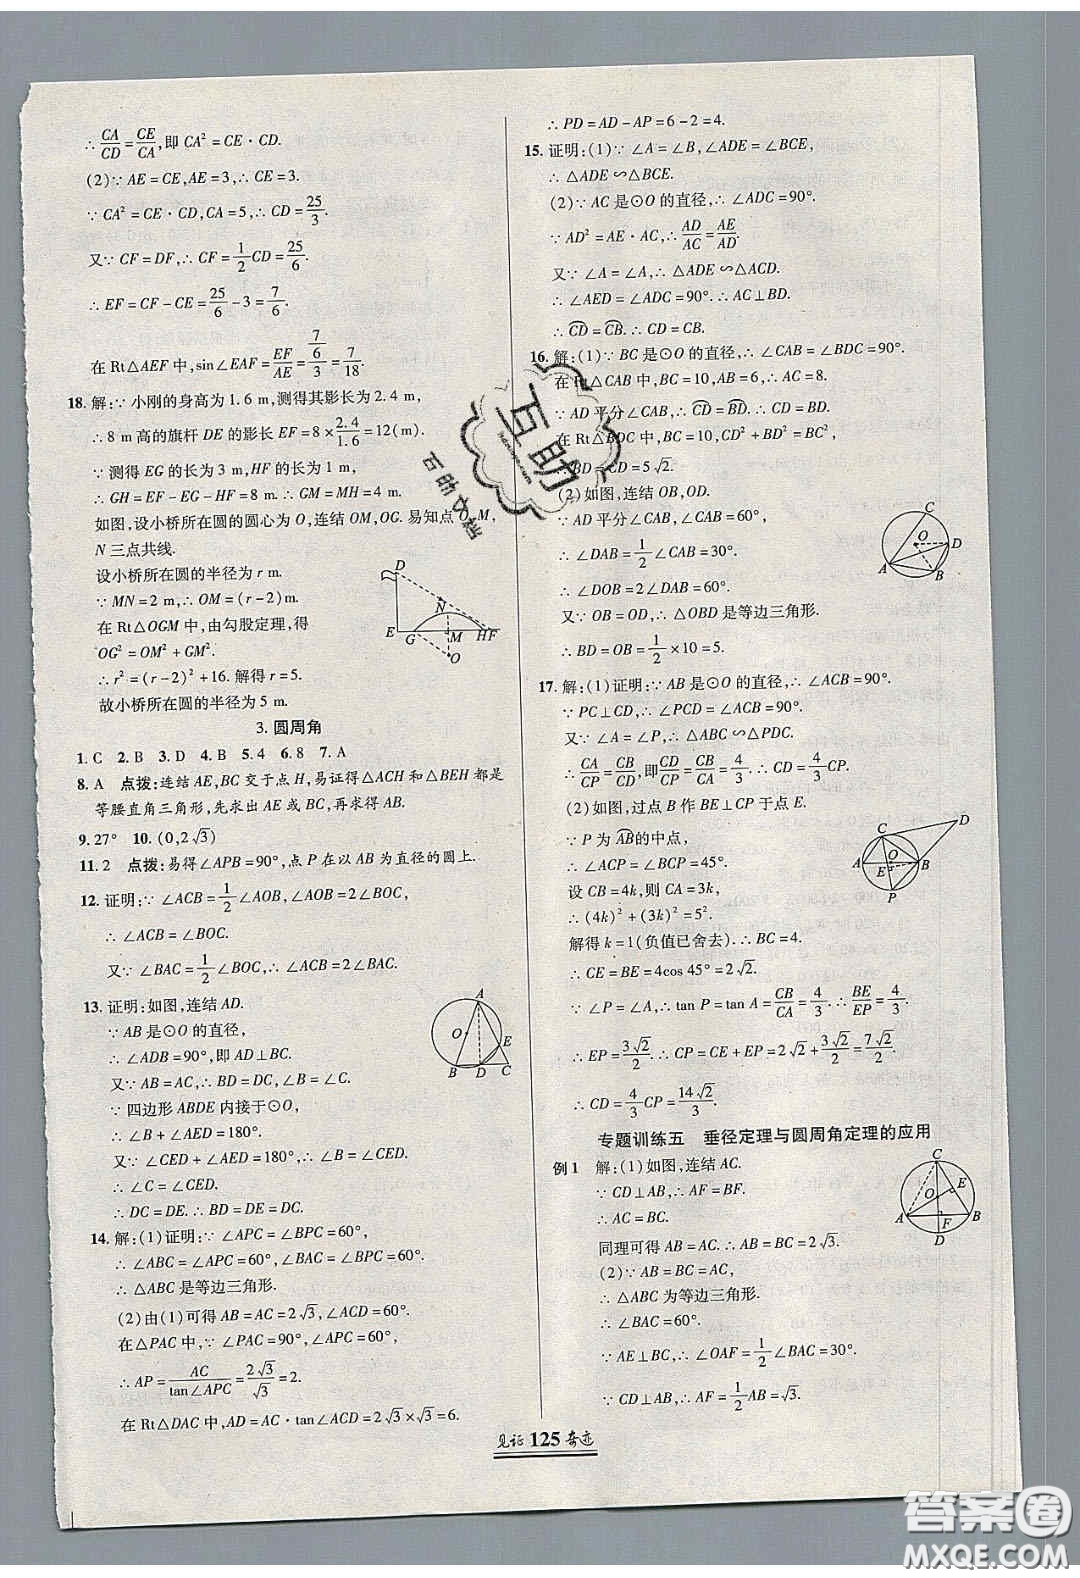 ∴ CA/CD = CE/CA, 即 CA² = CE · CD.
(2)∵ AE = CE, AE = 3, ∴ CE = 3.
∵ CA² = CE · CD, CA = 5, ∴ CD = 25/3.
又∵ CF = DF, ∴ CF = 1/2 CD = 25/6.
∴ EF = CF − CE = 25/6 − 3 = 7/6.
在 Rt△AEF 中, sin∠EAF = EF/AE = (7/6)/3 = 7/18.
18. 解:∵ 小刚的身高为 1.6 m, 测得其影长为 2.4 m,
∴ 8 m 高的旗杆 DE 的影长 EF = 8 × 2.4/1.6 = 12(m).
∵ 测得 EG 的长为 3 m, HF 的长为 1 m,
∴ GH = EF − EG − HF = 8 m. ∴ GM = MH = 4 m.
如图, 设小桥所在圆的圆心为 O, 连结 OM, OG. 易知点 O, M,
N 三点共线.
设小桥所在圆的半径为 r m.
∵ MN = 2 m, ∴ OM = (r − 2) m.
在 Rt△OGM 中, 由勾股定理, 得
OG² = OM² + GM².
∴ r² = (r − 2)² + 16. 解得 r = 5.
故小桥所在圆的半径为 5 m.
D
N
E
G
M
HF
O
3. 圆周角
1. C 2. B 3. D 4. B 5. 4 6. 8 7. A
8. A 点拨: 连结 AE, BC 交于点 H, 易证得 △ACH 和 △BEH 都是
等腰直角三角形, 先求出 AE 或 BC, 再求得 AB.
9. 27° 10. (0, 2√3)
11. 2 点拨: 易得 ∠APB = 90°, 点 P 在以 AB 为直径的圆上.
12. 证明:∵ ∠ACB = 1/2 ∠AOB, ∠AOB = 2∠BOC,
∴ ∠ACB = ∠BOC.
又∵ ∠BAC = 1/2 ∠BOC, ∴ ∠ACB = 2∠BAC.
13. 证明: 如图, 连结 AD.
∵ AB 是⊙O 的直径,
∴ ∠ADB = 90°, 即 AD⊥BC.
又∵ AB = AC, ∴ BD = DC, ∠B = ∠C.
∵ 四边形 ABDE 内接于⊙O,
∴ ∠B + ∠AED = 180°.
又∵ ∠CED + ∠AED = 180°, ∴ ∠B = ∠CED.
∴ ∠C = ∠CED.
∴ DC = DE. ∴ BD = DE = DC.
A
O
E
B
D
C
14. 解:(1)证明:∵ ∠APC = ∠BPC = 60°,
∴ ∠ABC = ∠APC = 60°, ∠BAC = ∠BPC = 60°.
∴ △ABC 是等边三角形.
(2)由(1)可得 AB = AC = 2√3, ∠ACD = 60°.
在△PAC 中, ∵ ∠PAC = 90°, ∠APC = 60°,
∴ AP = AC/tan∠APC = 2√3/√3 = 2.
在 Rt△DAC 中, AD = AC · tan∠ACD = 2√3 × √3 = 6.
∴ PD = AD − AP = 6 − 2 = 4.
15. 证明:(1)∵ ∠A = ∠B, ∠ADE = ∠BCE,
∴ △ADE ∽ △BCE.
(2)∵ AC 是⊙O 的直径, ∴ ∠ADC = 90°.
∵ AD² = AE · AC, ∴ AD/AC = AE/AD.
又∵ ∠A = ∠A, ∴ △ADE ∽ △ACD.
∴ ∠AED = ∠ADC = 90°. ∴ AC⊥BD.
∴ CD = CB. ∴ CD = CB.
16. 解:(1)∵ BC 是⊙O 的直径, ∴ ∠CAB = ∠BDC = 90°.
在 Rt△CAB 中, BC = 10, AB = 6, ∴ AC = 8.
∵ AD 平分∠CAB, ∴ CD = BD. ∴ CD = BD.
在 Rt△BDC 中, BC = 10, CD² + BD² = BC²,
∴ BD = CD = 5√2.
(2)如图, 连结 OB, OD.
∵ AD 平分∠CAB, ∠CAB = 60°,
∴ ∠DAB = 1/2 ∠CAB = 30°.
∴ ∠DOB = 2∠DAB = 60°.
又∵ OB = OD, ∴ △OBD 是等边三角形.
∴ BD = OB = 1/2 × 10 = 5.
C
O
D
A
B
17. 解:(1)证明:∵ AB 是⊙O 的直径, ∴ ∠ACB = 90°.
∵ PC⊥CD, ∴ ∠PCD = 90°.
又∵ ∠A = ∠P, ∴ △ABC ∽ △PDC.
∴ CA/CP = CB/CD, 即 CD/CP = CB/CA = 4/3. ∴ CD = 4/3 CP.
(2)如图, 过点 B 作 BE⊥CP 于点 E.
∵ P 为 AB 的中点,
∴ ∠ACP = ∠BCP = 45°.
设 CB = 4k, 则 CA = 3k,
∴ (4k)² + (3k)² = 5².
解得 k = 1(负值已舍去). ∴ BC = 4.
∴ CE = BE = 4cos 45° = 2√2.
∵ ∠P = ∠A, ∴ tan P = tan A = CB/CA = 4/3. ∴ BE/EP = 4/3.
∴ EP = 3√2/2. ∴ CP = CE + EP = 2√2 + 3√2/2 = 7√2/2.
∴ CD = 4/3 CP = 14√2/3.
C
D
A
O
E
B
P
专题训练五 垂径定理与圆周角定理的应用
例 1 解:(1)如图, 连结 AC.
∵ CD⊥AB, ∴ AF = BF.
∴ AC = BC.
同理可得 AB = AC. ∴ AB = BC.
(2)∵ AB = BC = AC,
∴ △ABC 为等边三角形.
∴ ∠BAC = 60°.
∵ AE⊥BC, ∴ ∠OAF = 1/2 ∠BAC = 30°.
∵ CD⊥AB, ∴ AF = 1/2 AB = √3.
C
E
O
A
F
B
D
见证 125 奇迹
互助
百助文档
答案圈
MXQE.COM